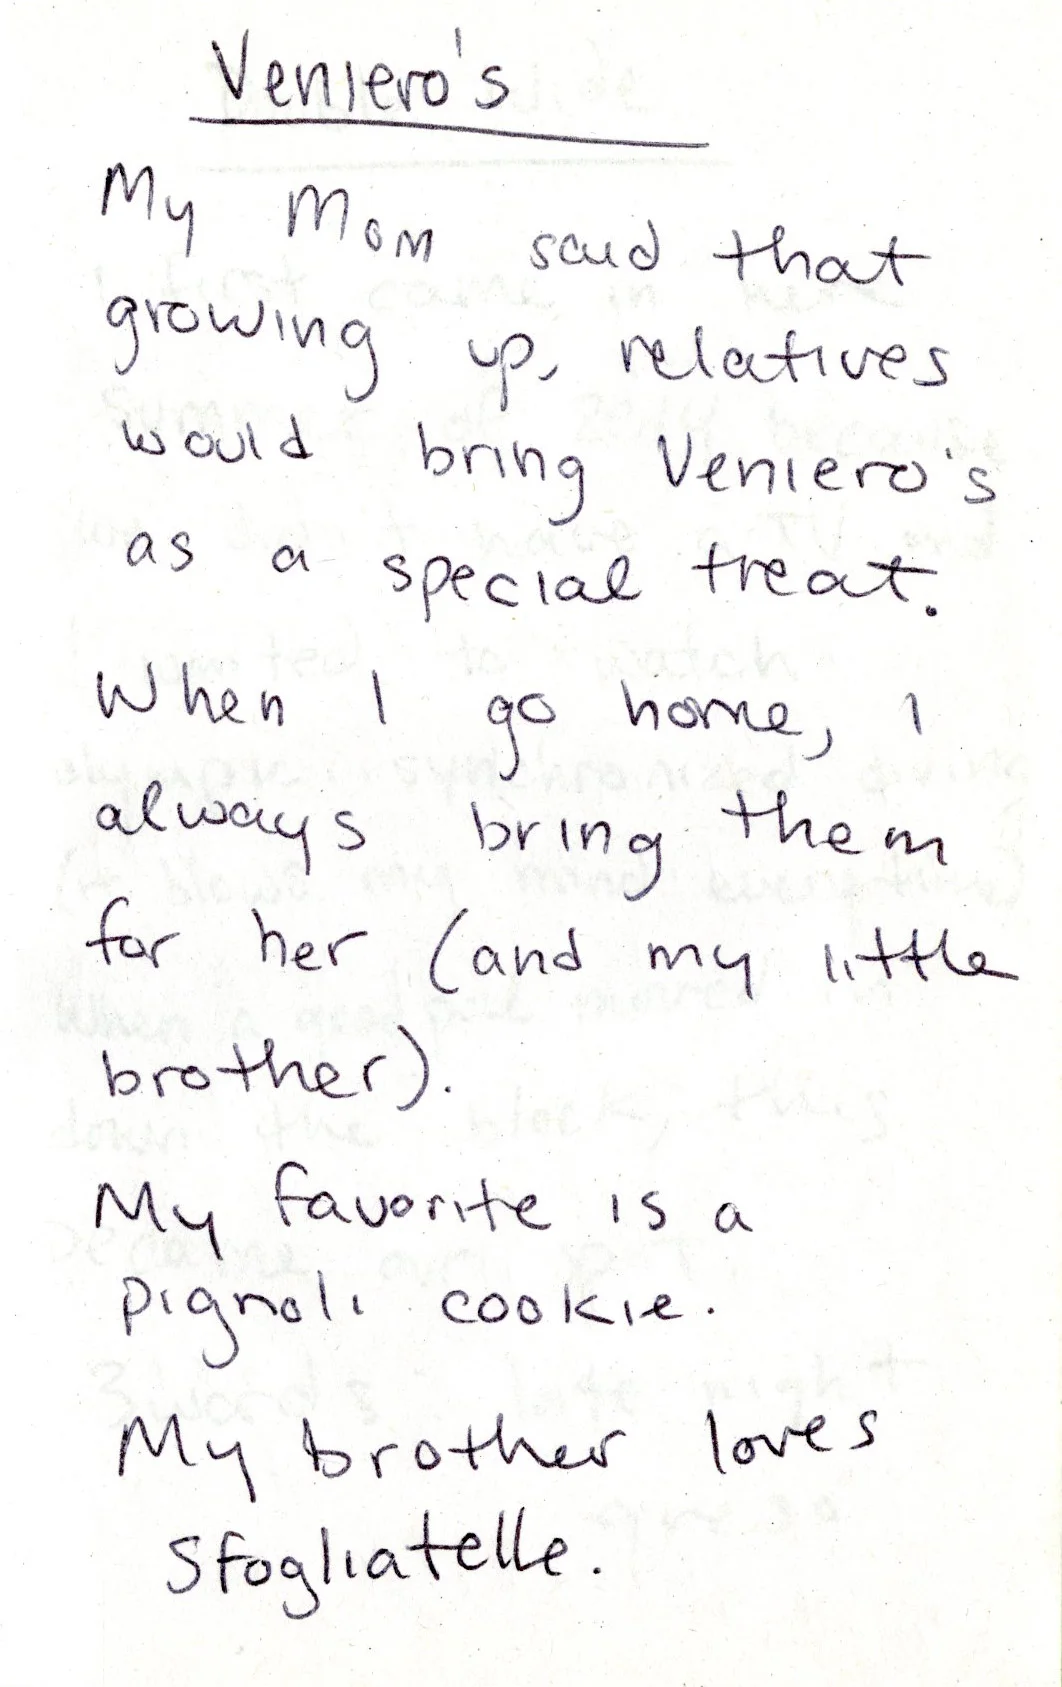 Veniero's
My Mom said that
growing up, relatives
would bring Veniero's
as a special treat.
When I go home, I
always bring them
for her (and my little
brother).
My favorite is a
pignoli cookie.
My brother loves
Sfogliatelle.